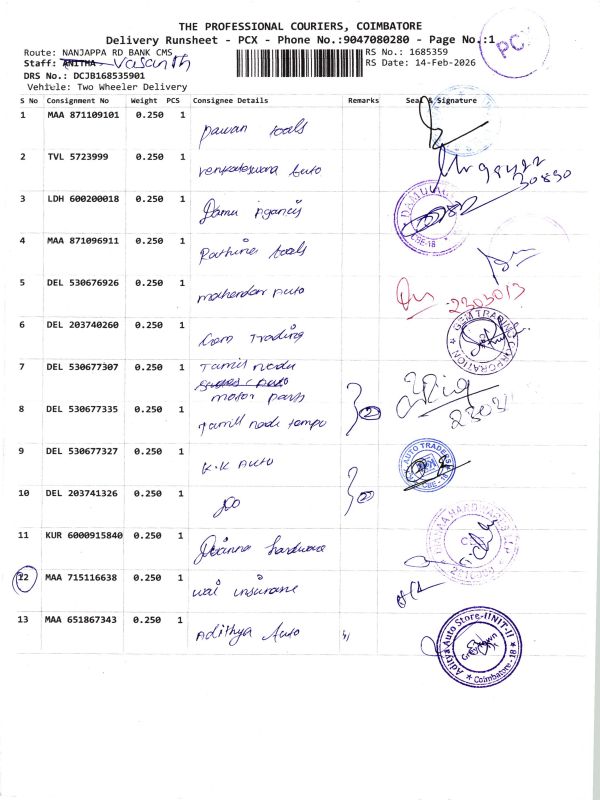 THE PROFESSIONAL COURIERS, COIMBATORE
Delivery Runsheet - PCX - Phone No.:9047080280 - Page No.:1
PCX
Route: NANJAPPA RD BANK CMS
RS No.: 1685359
Staff: ANITHA Vasanth
RS Date: 14-Feb-2026
DRS No.: DCJB168535901
Vehicle: Two Wheeler Delivery
S No Consignment No Weight PCS Consignee Details Remarks Seal & Signature
1 MAA 871109101 0.250 1 pawan tools
2 TVL 5723999 0.250 1 venkateswara Auto
30830
3 LDH 600200018 0.250 1 Damu
4 MAA 871096911 0.250 1 Rathine tools
5 DEL 530676926 0.250 1 mahendar Auto
2303013
6 DEL 203740260 0.250 1 Gom Trading
GEM TRADING CORPORATION
7 DEL 530677307 0.250 1 Tamil nadu
motor parts
8 DEL 530677335 0.250 1 Tamill nadu tempo 2
9 DEL 530677327 0.250 1 K.K Auto
AUTO TRADERS
CBE-18
10 DEL 203741326 0.250 1 DO
11 KUR 6000915840 0.250 1 hardware
12 MAA 715116638 0.250 1 insurance
13 MAA 651867343 0.250 1 Adithya Auto
Aditya Auto Store-UNIT-II
Coimbatore-18